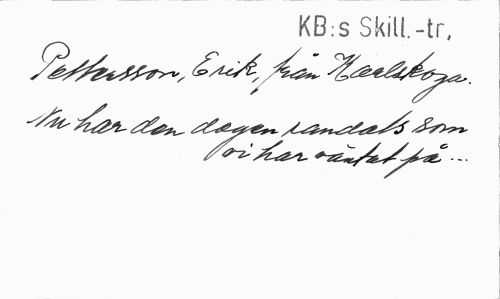 KB:s Skill.-tr,
Pettersson, Erik, från Karlskoga.
Nu har den dagen randats som
vi har väntat på ...